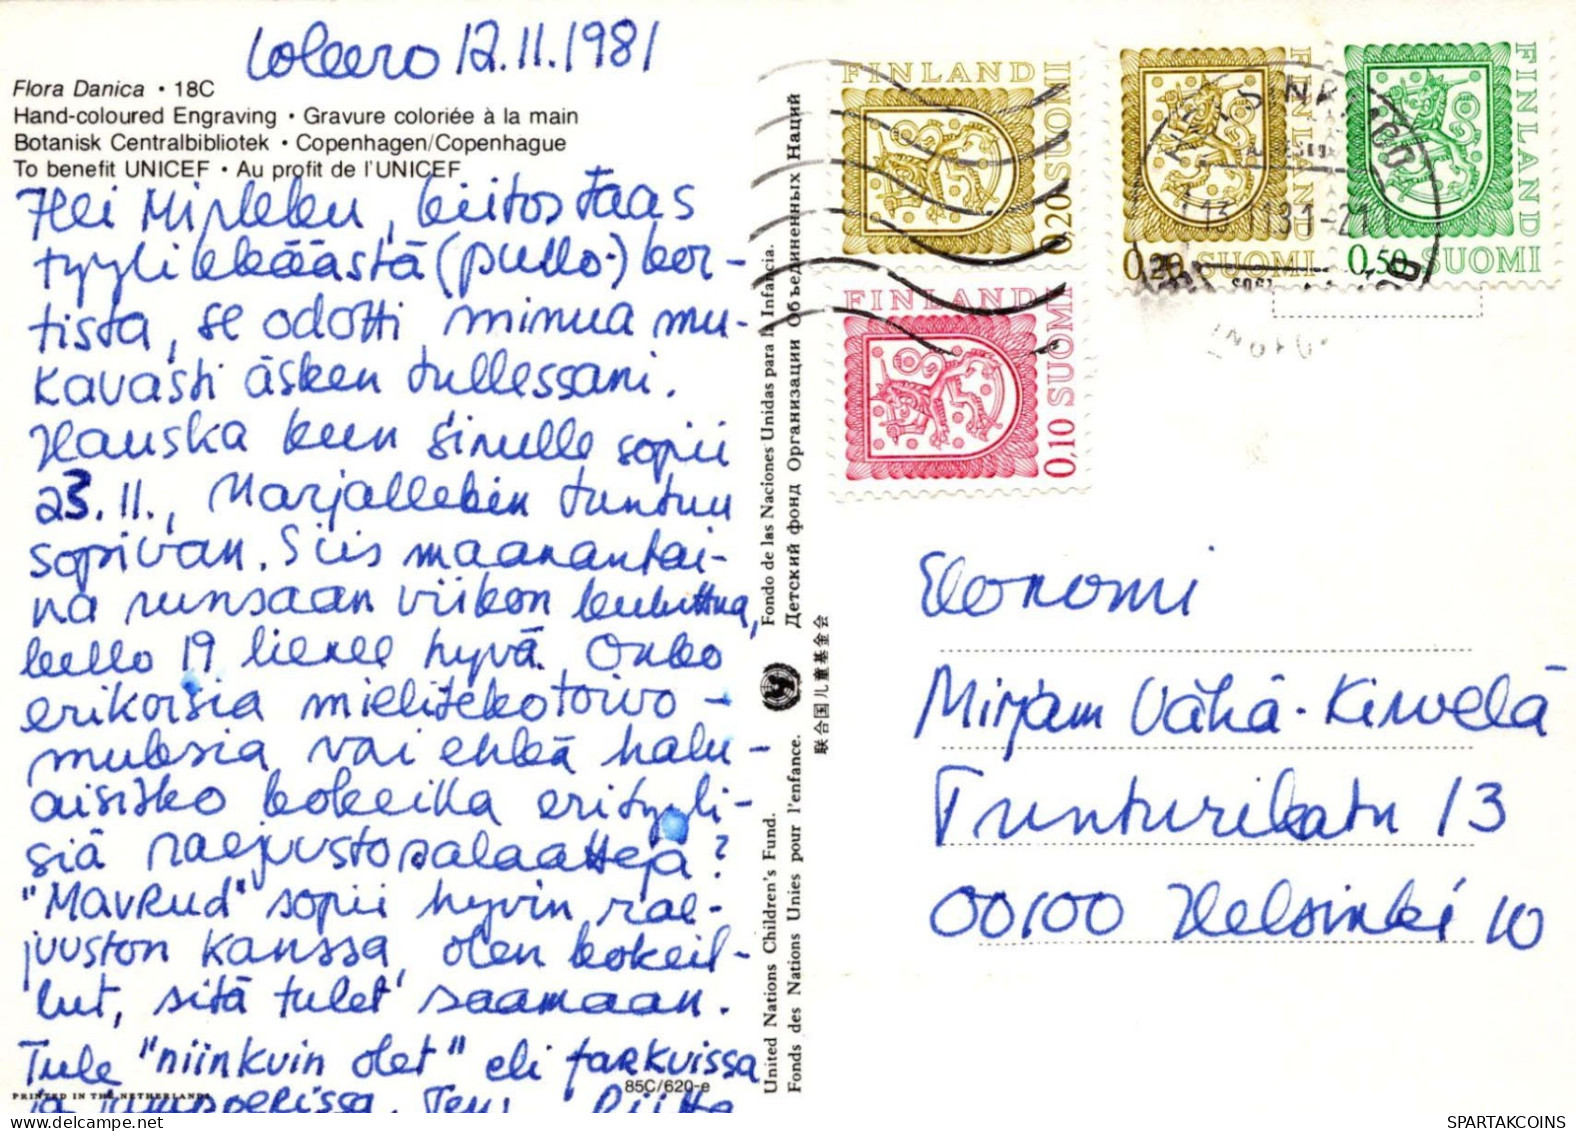 12.11.1981
Flora Danica • 18C
Hand-coloured Engraving • Gravure coloriée à la main
Botanisk Centralbibliotek • Copenhagen/Copenhague
To benefit UNICEF • Au profit de l'UNICEF
Hei Mirkku, kiitos taas
tyylikkäästä (pullo-) kor-
tista, se odotti minua mu-
kavasti äsken tullessani.
Hauska kun sinulle sopii
23.11., Marjallekin tuntuu
sopivan. Siis maanantai-
na runsaan viikon kuluttua,
kello 19 lienee hyvä. Onko
erikoisia mieliteko toivo-
muksia vai ehkä halu-
aisitko kokeilla erityyli-
siä raejuustosalaatteja?
"MAVRUD" sopii hyvin rae-
juuston kanssa, olen kokeil-
lut, sitä tulet saamaan.
Tule "niinkuin olet" eli farkuissa
ja Terv. Riitta
PRINTED IN THE NETHERLANDS
85C/620-e
United Nations Children's Fund. Fondo de las Naciones Unidas para la Infancia.
Fonds des Nations Unies pour l'enfance. Детский фонд Организации Объединенных Наций
联合国儿童基金会
FINLAND
0,20 SUOMI
FINLAND
0,20 SUOMI
FINLAND
0,50 SUOMI
FINLAND
0,10 SUOMI
Ekonomi
Mirjam Vähä-Kirvelä
Tunturikatu 13
00100 Helsinki 10
SPARTAKCOINS